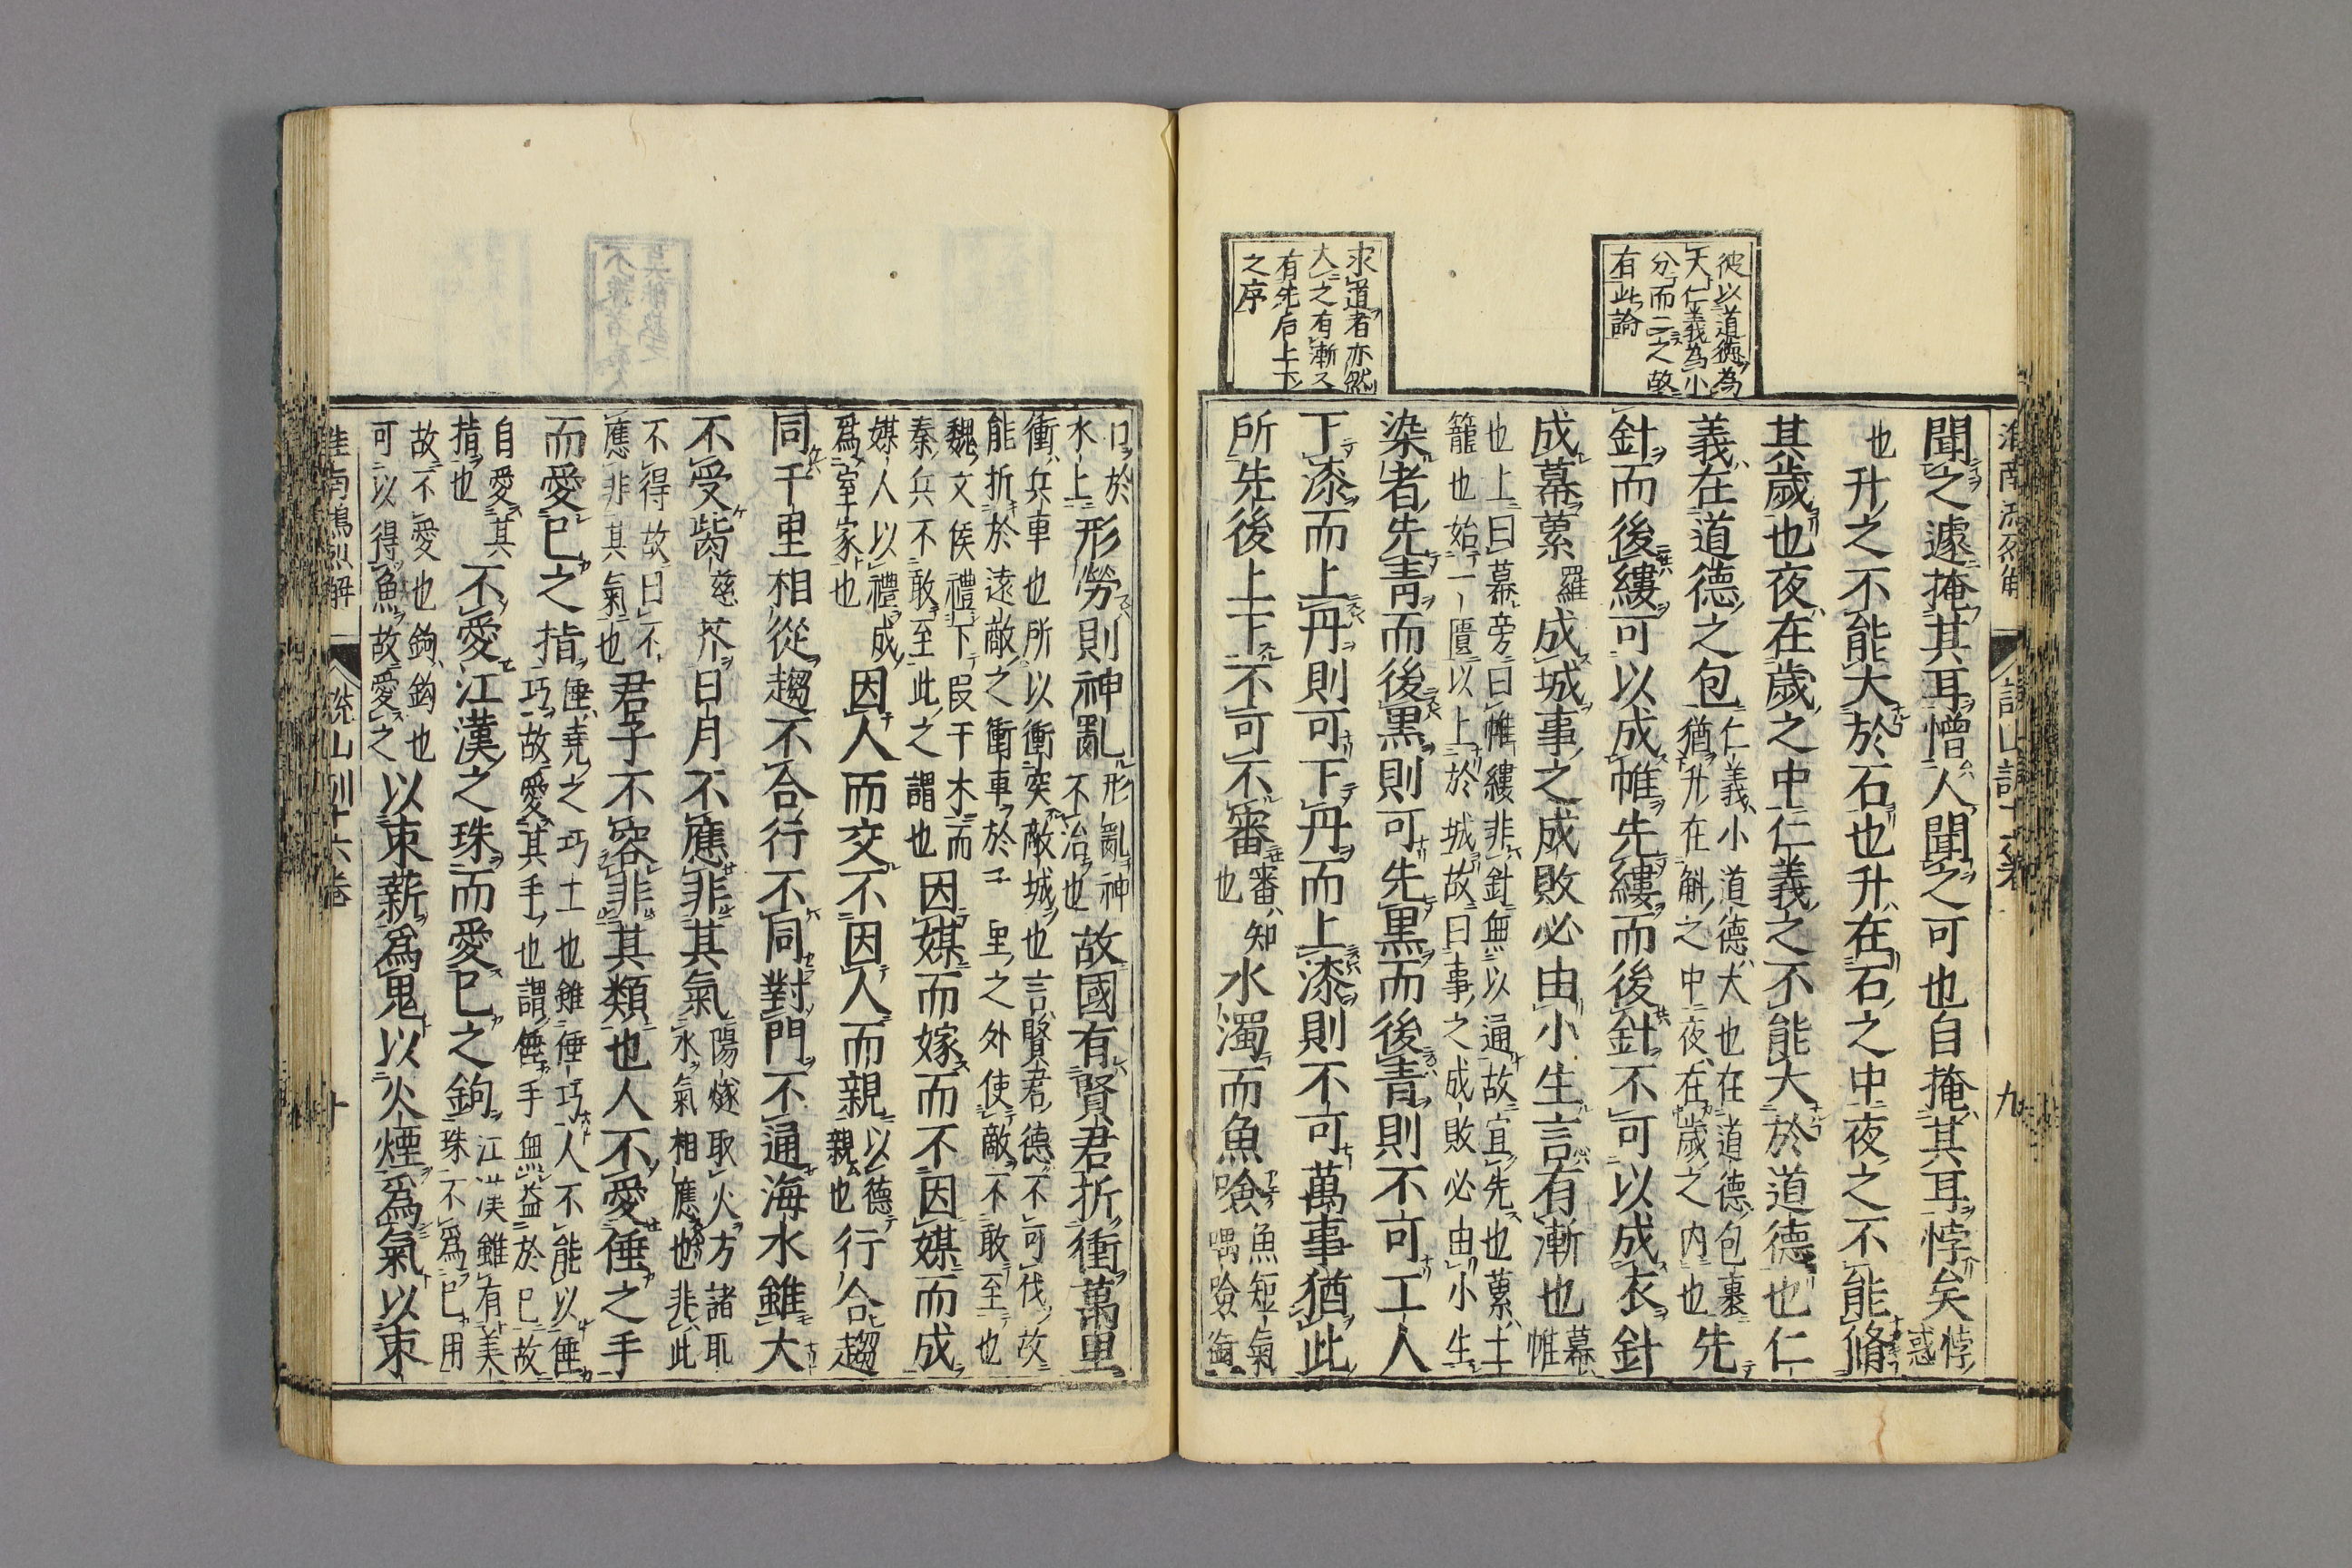 彼以道德為
大仁義為小
分而二之故
有此論
求道者亦然
大之有漸又
有先后上下
之序
聞之遽掩其耳憎人聞之可也自掩其耳悖矣悖惑
也升之不能大於石也升在石之中夜之不能脩
其歲也夜在歲之中仁義之不能大於道德也仁
義在道德之包仁義小道德大也在道德包裹猶升在斛之中夜在歲之内也先
針而後縷可以成帷先縷而後針不可以成衣針
成幕蔂羅成城事之成敗必由小生言有漸也幕帷
也上曰幕旁曰帷縷非針無以通故宜先也蔂土
籠也始一匱以上於城故曰事之成敗必由小生
染者先青而後黒則可先黒而後青則不可工人
下漆而上丹則可下丹而上漆則不可萬事猶此
所先後上下不可不審審知也水濁而魚噞魚短氣喁噞
口於水上形勞則神亂形亂神不治也故國有賢君折衝萬里
衝兵車也所以衝突敵城也言賢君德不可伐故
能折於遠敵之衝車於千里之外使敵不敢至也
魏文侯禮下段干木而秦兵不敢至此之謂也因媒而嫁而不因媒而成
媒人以禮成爲室家也因人而交不因人而親以德親也行合趨
同千里相從趨不合行不同對門不通海水雖大
不受胔慈芥日月不應非其氣陽燧取火方諸取水氣相應也非此
不得故曰不應非其氣也君子不容非其類也人不愛倕之手
而愛已之指倕堯之巧土也雖倕巧人不能以倕巧故愛其手也謂倕手無益於已故
自愛其指也不愛江漢之珠而愛已之鉤江漢雖有美珠不爲已用
故不愛也鉤鉤也可以得魚故愛之以束薪爲鬼以火煙爲氣以束
淮南鴻烈解
說山訓十六卷
九
十